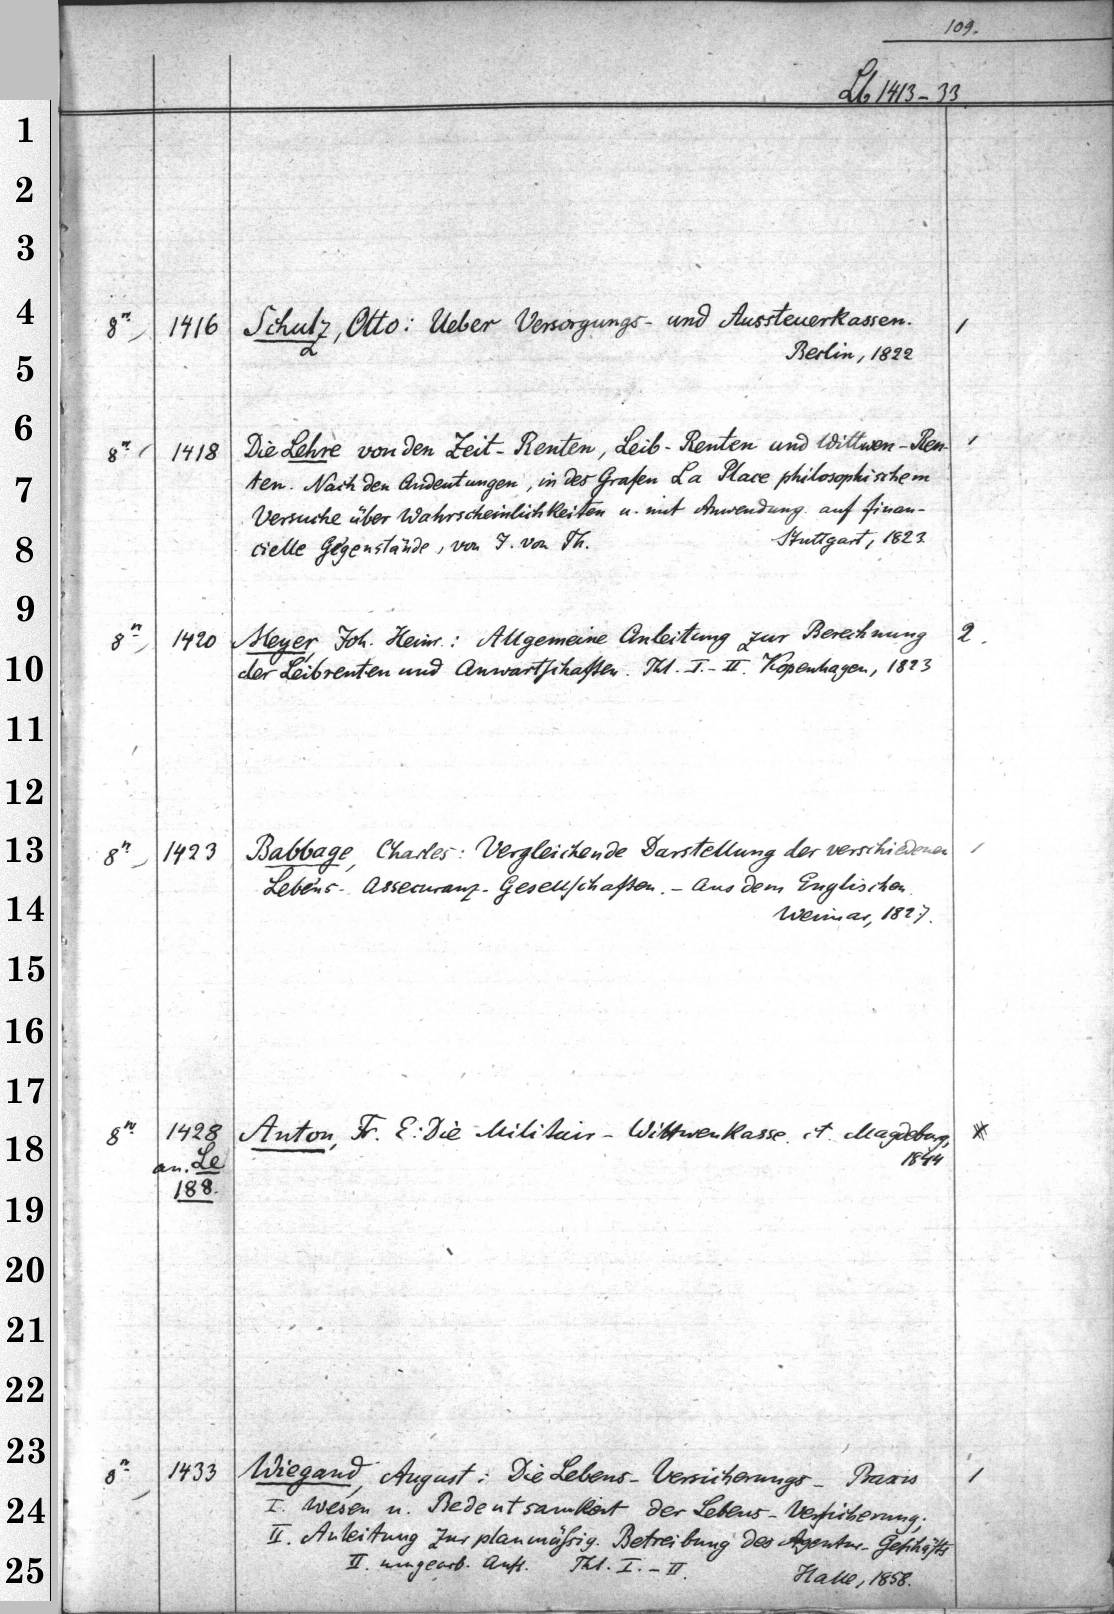 109.
Lb 1413-33
1
2
3
4
8º 1416 Schulz, Otto: Ueber Versorgungs- und Aussteuerkassen. 1
Berlin, 1822
5
6
8º 1418 Die Lehre von den Zeit-Renten, Leib-Renten und Wittwen-Ren- 1
7
ten. Nach den Andeutungen, in des Grafen La Place philosophischem
Versuche über Wahrscheinlichkeiten u. mit Anwendung auf finan-
8
cielle Gegenstände, von J. von Th. Stuttgart, 1823
9
8º 1420 Meyer, Joh. Heinr.: Allgemeine Anleitung zur Berechnung 2.
10
der Leibrenten und Anwartschaften. Thl. I.-II. Kopenhagen, 1823
11
12
13
8º 1423 Babbage, Charles: Vergleichende Darstellung der verschiedenen 1
Lebens-Assecuranz-Gesellschaften. - Aus dem Englischen.
14
Weimar, 1827.
15
16
17
8º 1428 Anton, Fr. E: Die Militair-Wittwenkasse. Magdeburg,
18
an. Le 1844
188.
19
20
21
22
23
8º 1433 Wiegand, August: Die Lebens-Versicherungs-Praxis 1
24
I. Wesen u. Bedeutsamkeit der Lebens-Versicherung;
II. Anleitung zur planmäßig. Betreibung des Agentur-Geschäfts
25
II. umgearb. Aufl. Thl. I.-II. Halle, 1858.